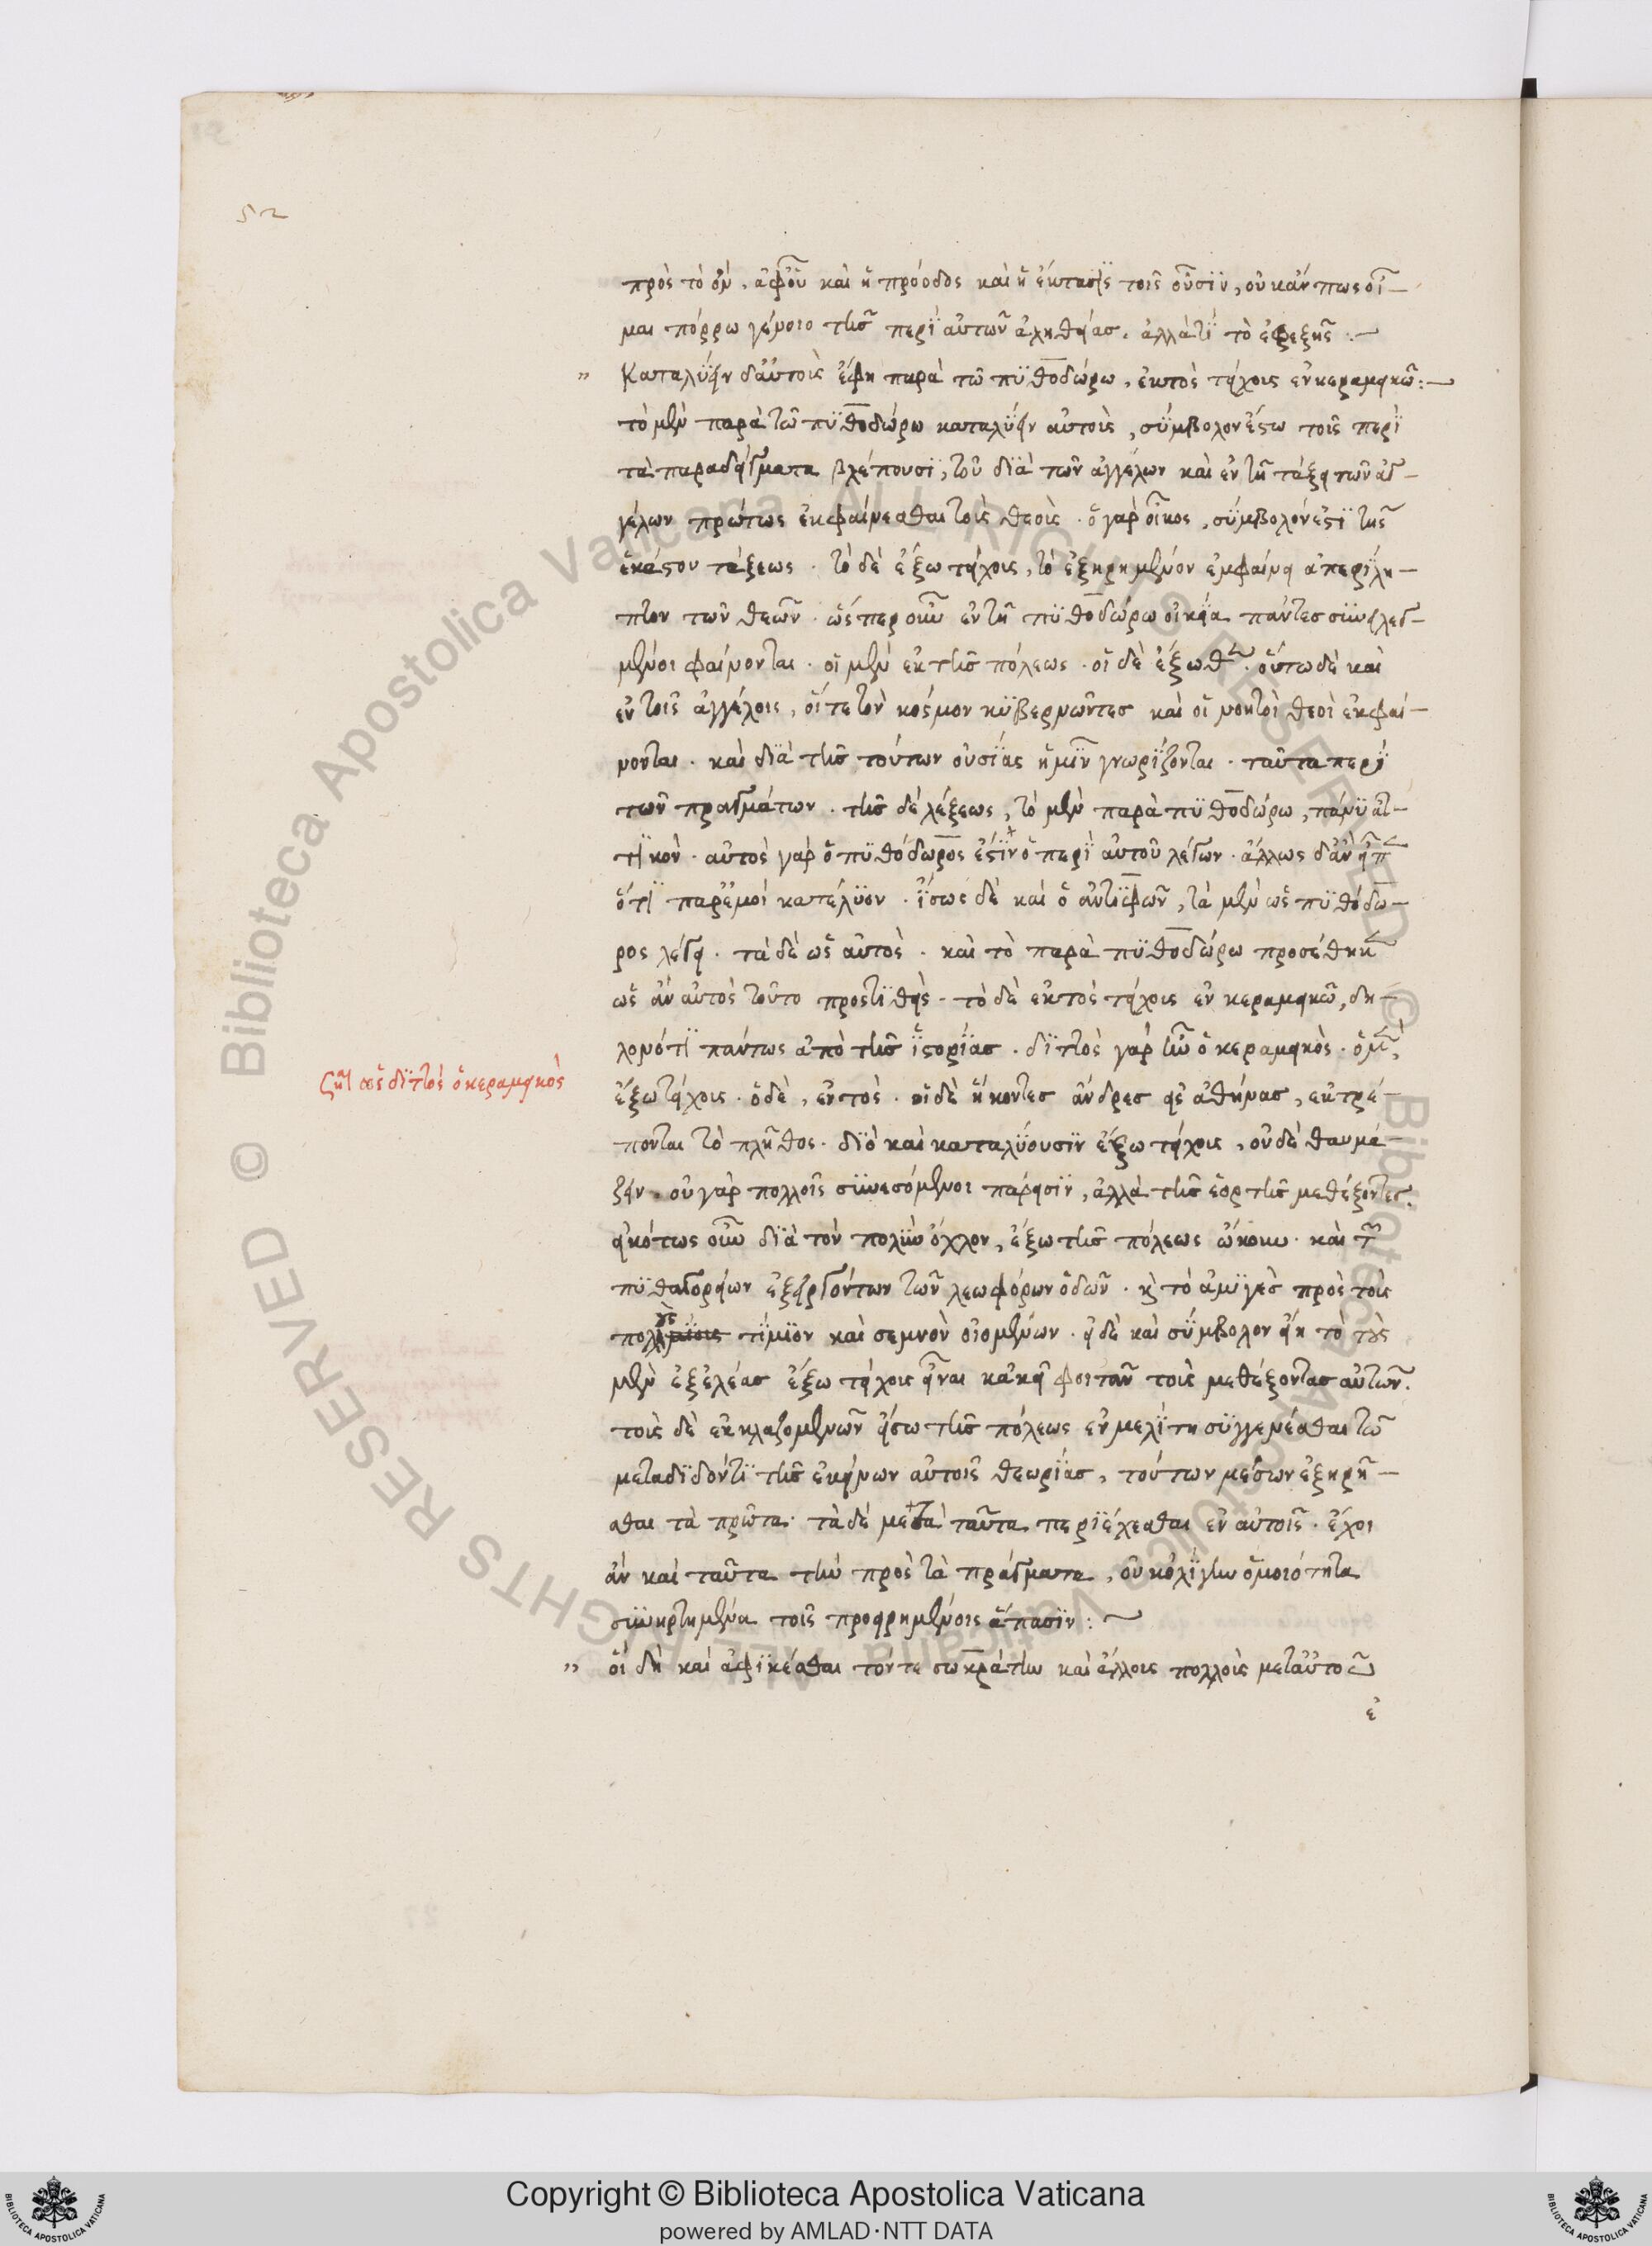 52
πρὸς τὸ ὂν, ἀφ' οὗ καὶ ἡ πρόοδος καὶ ἡ ἔκτασϊς τοῖς οὖσϊν, οὐκ ἄν πως οἶ-
μαι πόρρω γένοιο τῆς περϊ αὐτῶν ἀληθείας. ἀλλ' ἀτϊ τὸ ἐφεξῆς :~
" Καταλϋειν δ' αὐτοὺς ἔφη παρὰ τῶ πϋθοδώρω, ἐκτὸς τείχους ἐν κεραμεικῶ :~
τὸ μὲν παρὰ τῶ πϋθοδώρω καταλϋειν αὐτοὺς, σϋμβολον ἔστω τοῖς περϊ
τὰ παραδείγματα βλέπουσϊ, τοῦ δϊὰ τῶν ἀγγέλων καὶ ἐν τῆ τάξει τῶν ἀγ-
γέλων πρώτως ἐκφαίνεσθαι τοὺς θεοὺς. ὁ γὰρ οἶκος, σϋμβολόν ἐστϊ τῆς
ἑκάστου τάξεως. τὸ δὲ ἔξω τείχους, τὸ ἐξηρημένον ἐμφαίνει ἀπερϊλη-
πτον τῶν θεῶν. ὥσπερ οὖν ἐν τῆ πϋθοδώρω οἰκεία πάντες συνειλεγ-
μένοι φαίνονται. οἱ μὲν ἐκ τῆς πόλεως. οἱ δὲ ἔξωθεν. οὕτω δὲ καὶ
ἐν τοῖς ἀγγέλοις, οἵ τε τὸν κόσμον κϋβερνῶντες καὶ οἱ νοητοὶ θεοὶ ἐκφαί-
νονται. καὶ δϊὰ τῆς τούτων οὐσϊας ἡμῖν γνωρϊζονται. ταῦτα περϊ
τῶν πραγμάτων. τῆς δὲ λέξεως, τὸ μὲν παρὰ πϋθοδώρω, πάνϋ ἀτ-
τϊκὸν. αὐτὸς γὰρ ὁ πϋθόδωρος ἐστϊν ὁ περϊ αὐτοῦ λέγων. ἄλλως δ' ἂν εἶπεν
ὅτϊ παρ' ἐμοὶ κατέλϋον. ἴσως δὲ καὶ ὁ ἀντϊφῶν, τὰ μὲν ὡς πϋθόδω-
ρος λέγει. τὰ δὲ ὡς αὐτὸς. καὶ τὸ παρὰ πϋθοδώρω προσέθηκεν
ὡς ἂν αὐτὸς τοῦτο προστϊθεὶς. τὸ δὲ ἐκτὸς τείχους ἐν κεραμεικῶ, δη-
λονότϊ πάντως ἀπὸ τῆς ἱστορϊας. δϊττὸς γὰρ ἦν ὁ κεραμεικὸς. ὁ μὲν,
ση ὡς δϊττὸς ὁ κεραμεικὸς
ἔξω τείχους. ὁ δὲ, ἐντὸς. οἱ δὲ ἥκοντες ἄνδρες εἰς ἀθήνας, ἐκτρέ-
πονται τὸ πλῆθος. δϊὸ καὶ καταλϋουσϊν ἔξω τείχους, οὐδὲ θαυμά-
ζειν. οὐ γὰρ πολλοῖς συνεσόμενοι πάρεισϊν, ἀλλὰ τῆς ἑορτῆς μεθέξοντες.
εἰκότως οὖν δϊὰ τὸν πολὺν ὄχλον, ἔξω τῆς πόλεως ὤκουν. καὶ τῶν
πϋθαγορείων ἐξειργόντων τῶν λεωφόρων ὁδῶν. καὶ τὸ ἀμϊγὲς πρὸς τοὺς
πολλοὺς τϊμϊον καὶ σεμνὸν οἰομένων. εἰ δὲ καὶ σϋμβολον εἴη τὸ τοὺς
μὲν ἐξ ἐλέας ἔξω τείχους εἶναι κἀκεῖ φοιτᾶν τοὺς μεθέξοντας αὐτῶν.
τοὺς δὲ ἐκ κλαζομενῶν εἴσω τῆς πόλεως ἐν μελϊτη σϋγγενέσθαι τῶ
μεταδϊδόντϊ τῆς ἐκείνων αὐτοῖς θεωρϊας, τούτων μέσων ἐξηρῆ-
σθαι τὰ πρῶτα. τὰ δὲ μετὰ ταῦτα περϊέχεσθαι ἐν αὐτοῖς. ἔχοι
ἂν καὶ ταῦτα τὴν πρὸς τὰ πράγματα, οὐκ ὀλϊγην ὁμοιότητα
συνηρτημένα τοῖς προειρημένοις ἅπασϊν :~
" οἳ δὴ καὶ ἀφϊκέσθαι τόν τε σωκράτην καὶ ἄλλους πολλοὺς μετ' αὐτοῦ
ἐ
© Biblioteca Apostolica Vaticana ALL RIGHTS RESERVED
© Biblioteca Apostolica Vaticana ALL RIGHTS RESERVED
Copyright © Biblioteca Apostolica Vaticana
powered by AMLAD·NTT DATA
BIBLIOTECA APOSTOLICA VATICANA
BIBLIOTECA APOSTOLICA VATICANA